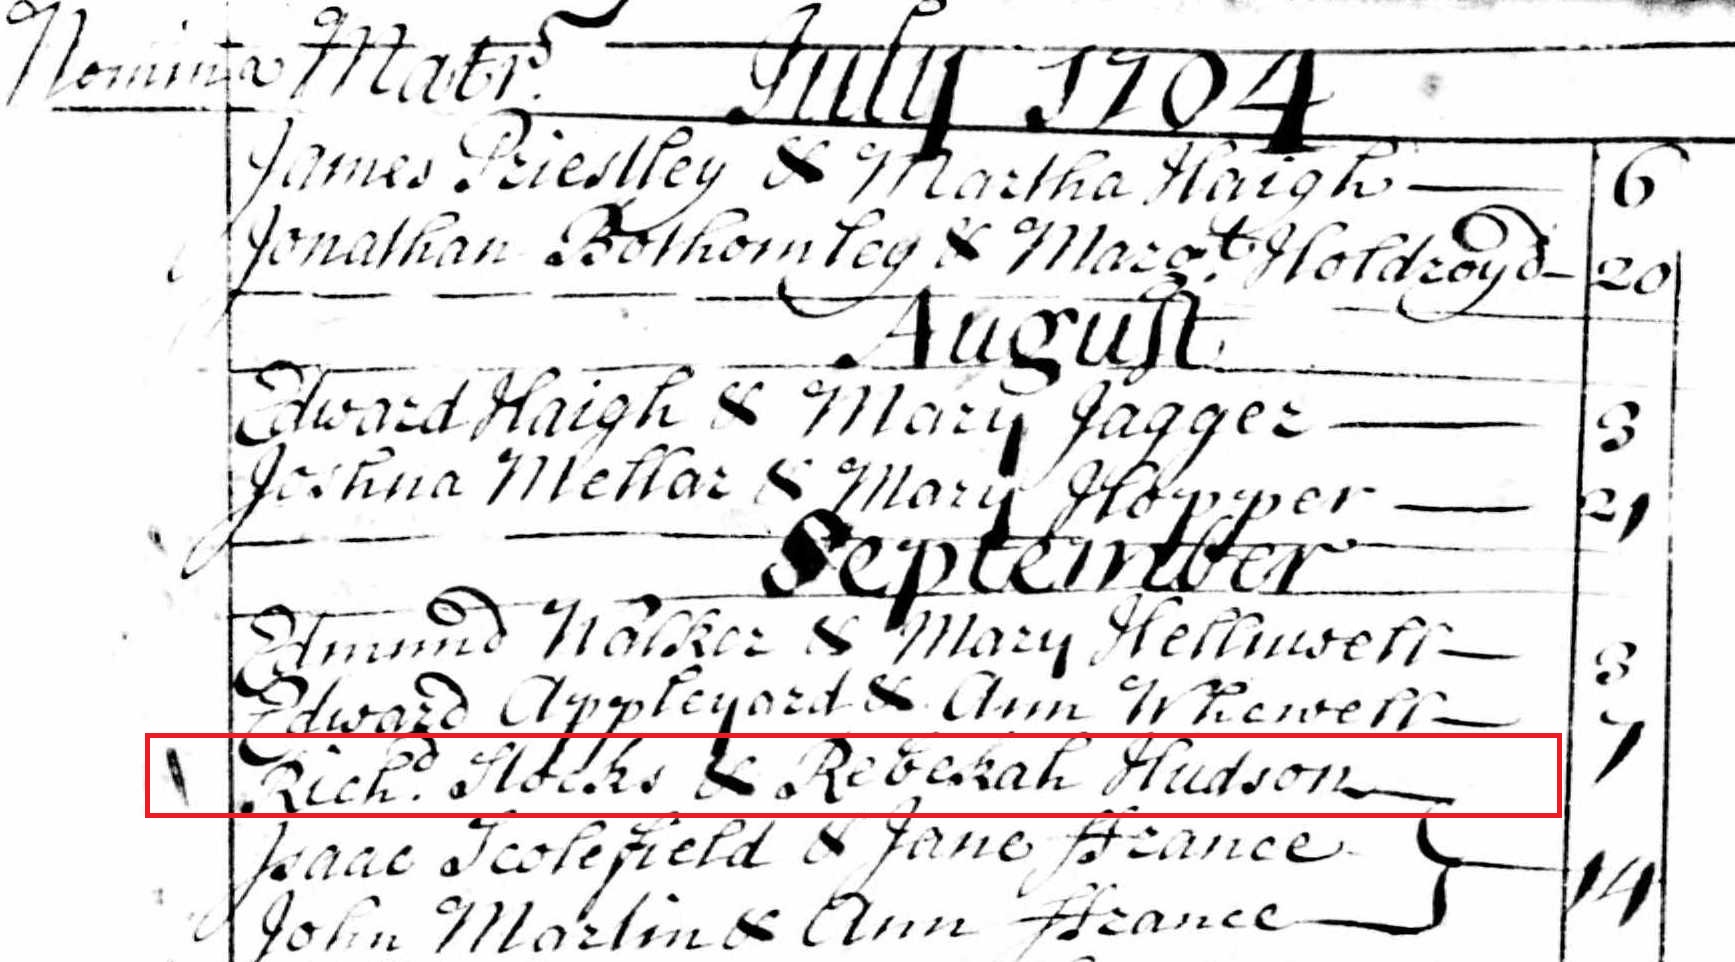 Nomina Matr. July 1704
James Priestley & Martha Haigh — 6
Jonathan Bothomley & Marg.t Holdroyd — 20
August
Edward Haigh & Mary Jagger — 3
Joshua Mellar & Mary Hopper — 21
September
Edmund Walker & Mary Helliwell — 3
Edward Appleyard & Ann Whewell — 7
Rich.d Stocks & Rebekah Hudson
Isaac Scolefield & Jane ffrance — 14
John Martin & Ann ffrance